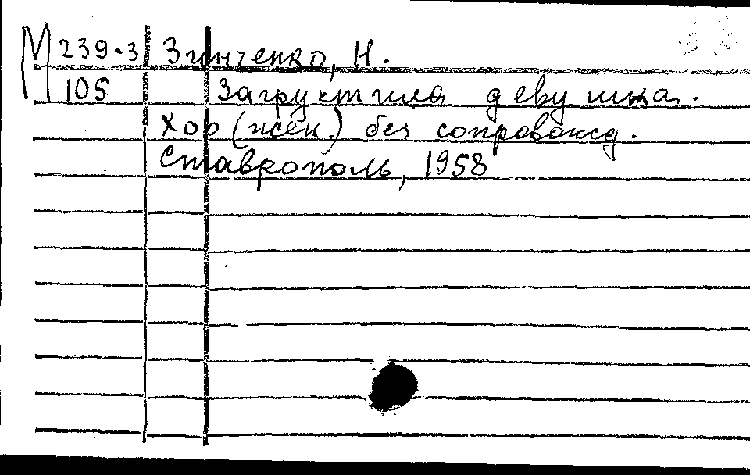 М 239-3 Зинченко, Н.
105 Загрустила девушка.
Хор (жен.) без сопровожд.
Ставрополь, 1958